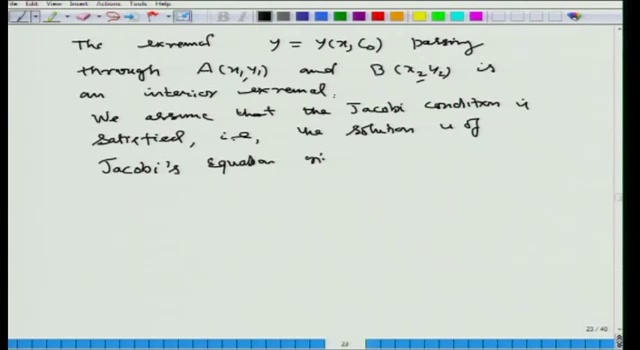 File Edit View Insert Actions Tools Help
The extremal y = y(x, C₀) passing
through A(x₁,y₁) and B(x₂,y₂) is
an interior extremal.
We assume that the Jacobi condition is
satisfied, i.e, the solution u of
Jacobi's Equation
23 / 40
23